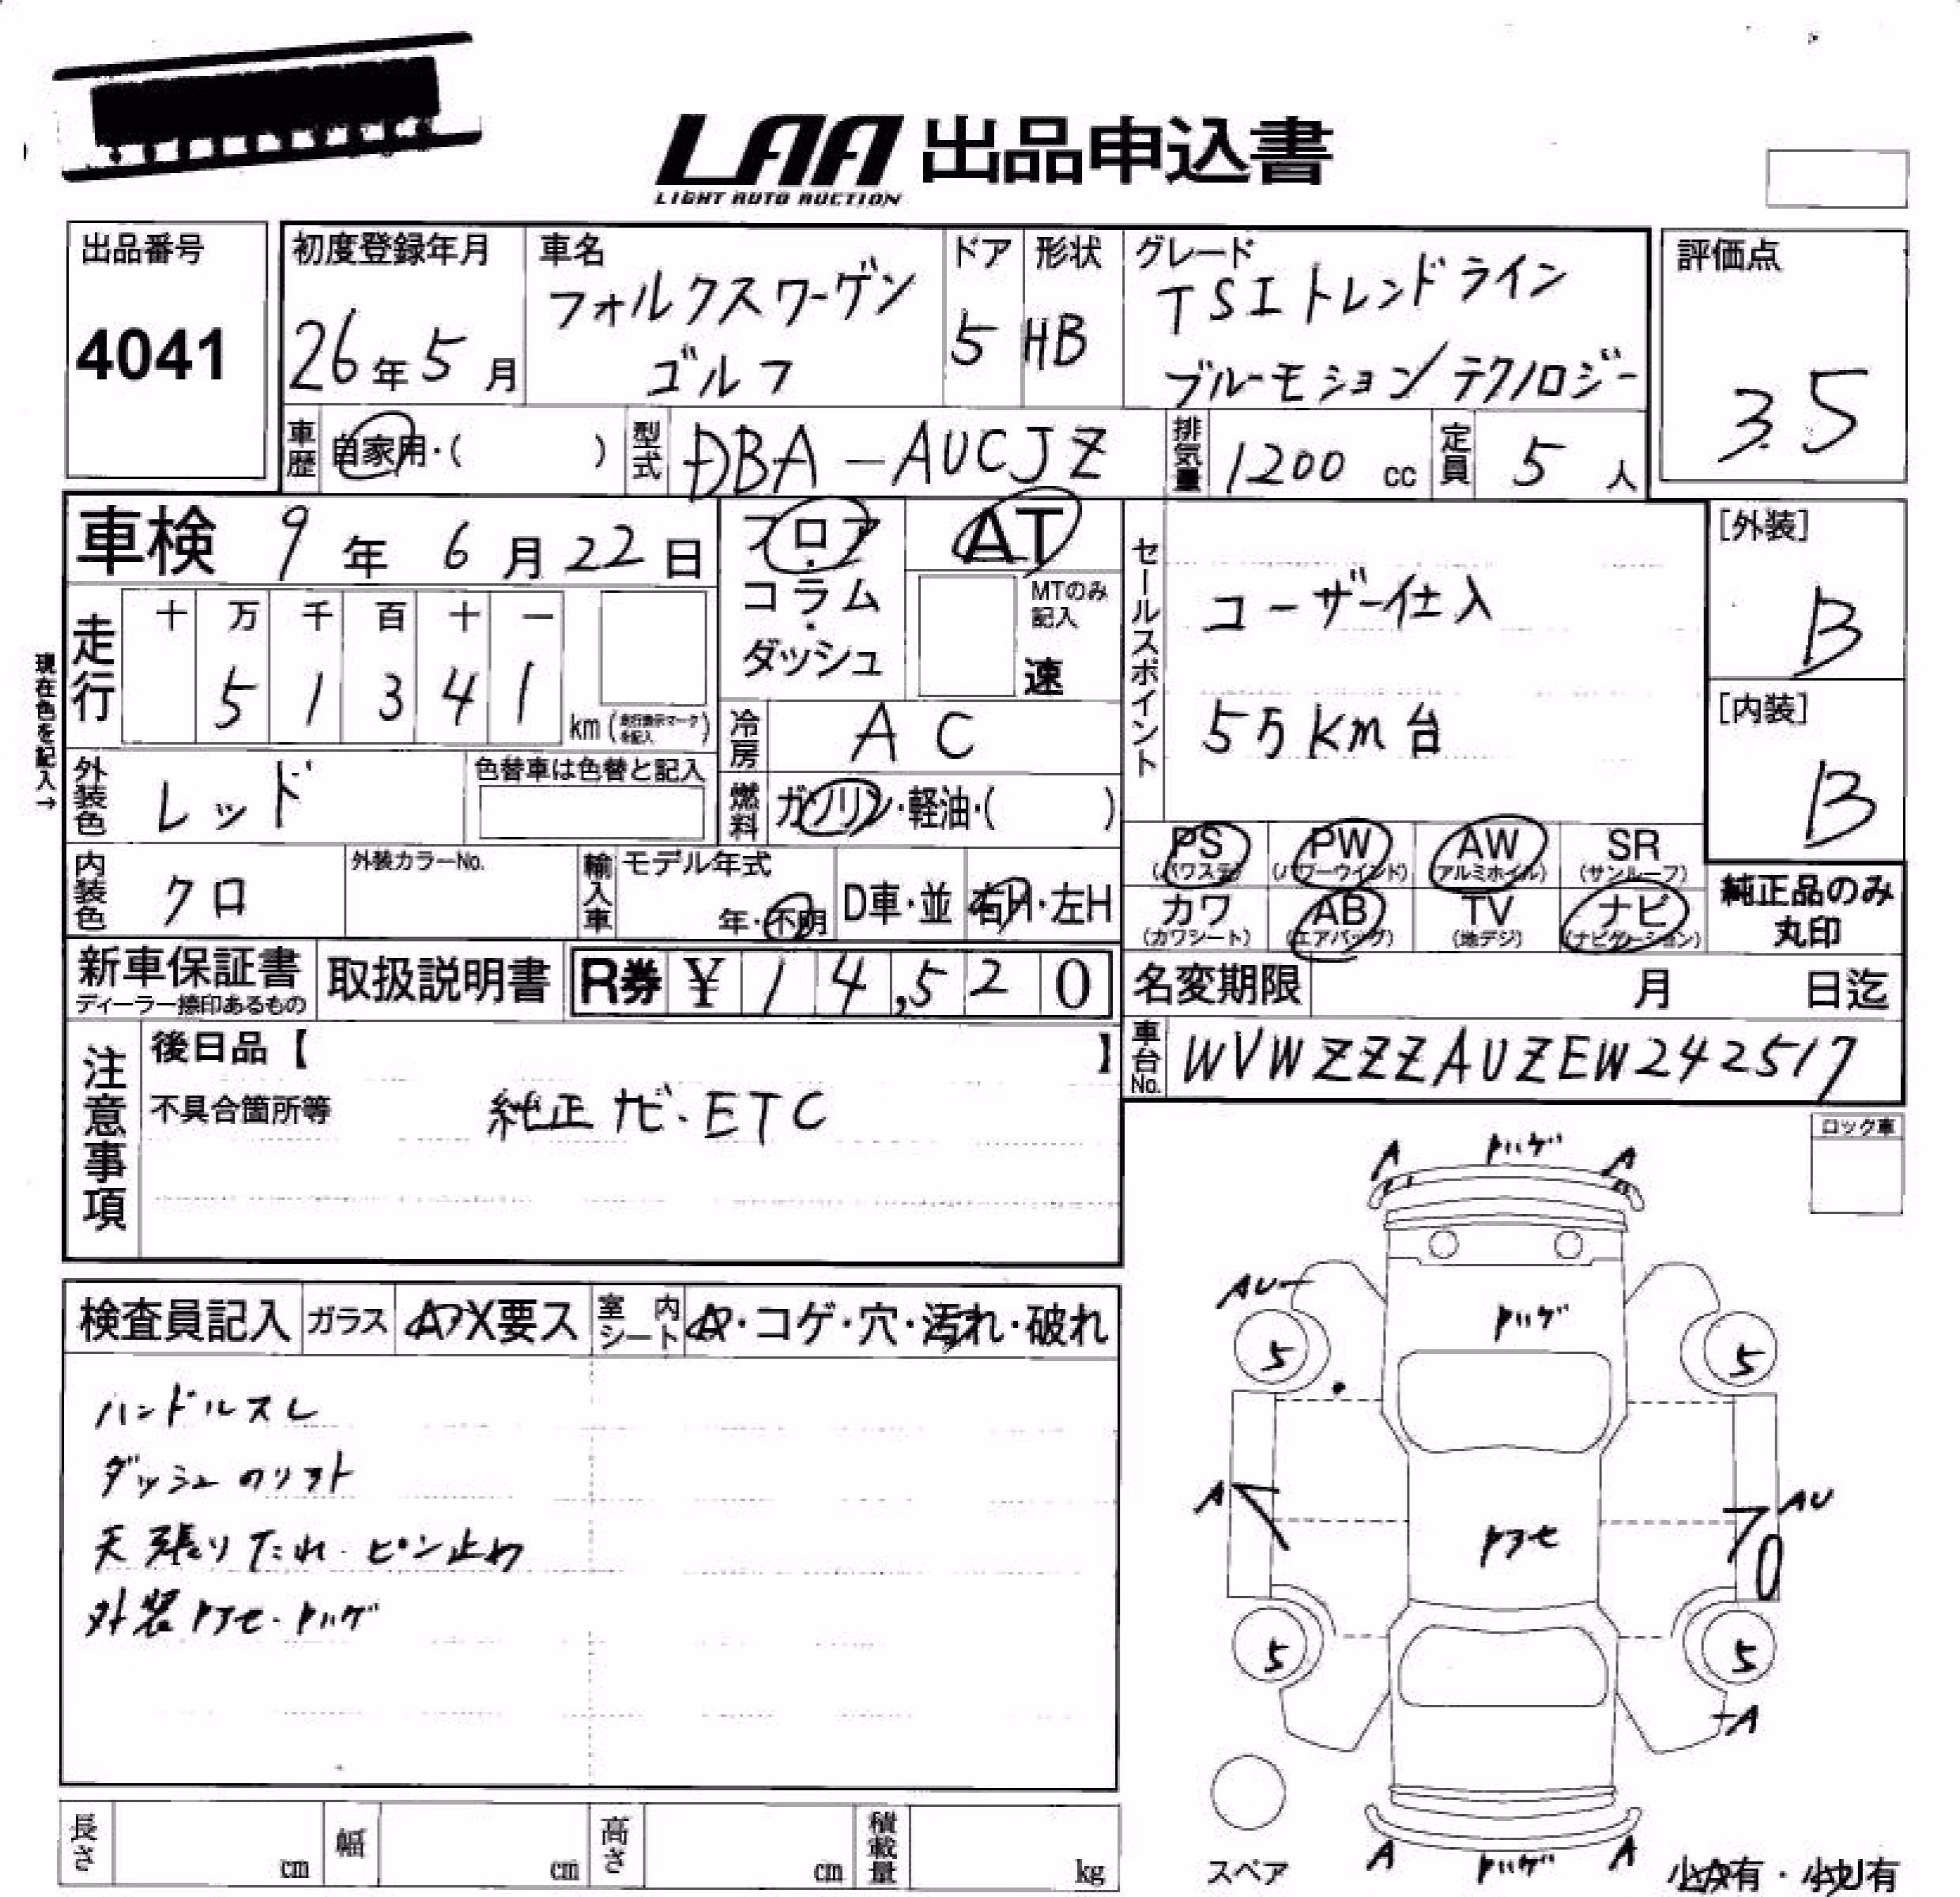 LAA 出品申込書
LIGHT AUTO AUCTION
出品番号
4041
初度登録年月
26年5月
車名
フォルクスワーゲン
ゴルフ
ドア
5
形状
HB
グレード
TSIトレンドライン
ブルーモーション/テクノロジー
評価点
3.5
車歴
自家用・( )
型式
DBA-AUCJZ
排気量
1200 cc
定員
5人
車検 9年6月22日
フロア
コラム
ダッシュ
AT
MTのみ
記入
速
セールスポイント
ユーザー仕入
5万km台
[外装]
B
[内装]
B
現在色を記入→
走行
十 万 千 百 十 一
5 1 3 4 1
km (走行表示マークを記入)
冷房
AC
外装色
レッド
色替車は色替と記入
燃料
ガソリン・軽油・( )
内装色
クロ
外装カラーNo.
輸入車
モデル年式
年・不明
D車・並
右H・左H
PS
(パワステ)
PW
(パワーウインド)
AW
(アルミホイル)
SR
(サンルーフ)
カワ
(カワシート)
AB
(エアバッグ)
TV
(地デジ)
ナビ
(ナビゲーション)
純正品のみ
丸印
新車保証書
ディーラー捺印あるもの
取扱説明書
R券 ¥14,520
名変期限 月 日迄
車台No.
WVWZZZAUZEW242517
注意事項
後日品【 】
不具合箇所等
純正ナビ・ETC
ロック車
検査員記入
ガラス
A・X要ス
室内シート
A・コゲ・穴・汚れ・破れ
ハンドルスレ
ダッシュのリフト
天張りたれ・ピン止め
外装トアセ・トハゲ
A トハゲ A
AU
トハゲ
5 5
A
AU
トアセ
5 5
A
A トハゲ A
スペア
小A有・小U有
長さ cm
幅 cm
高さ cm
積載量 kg